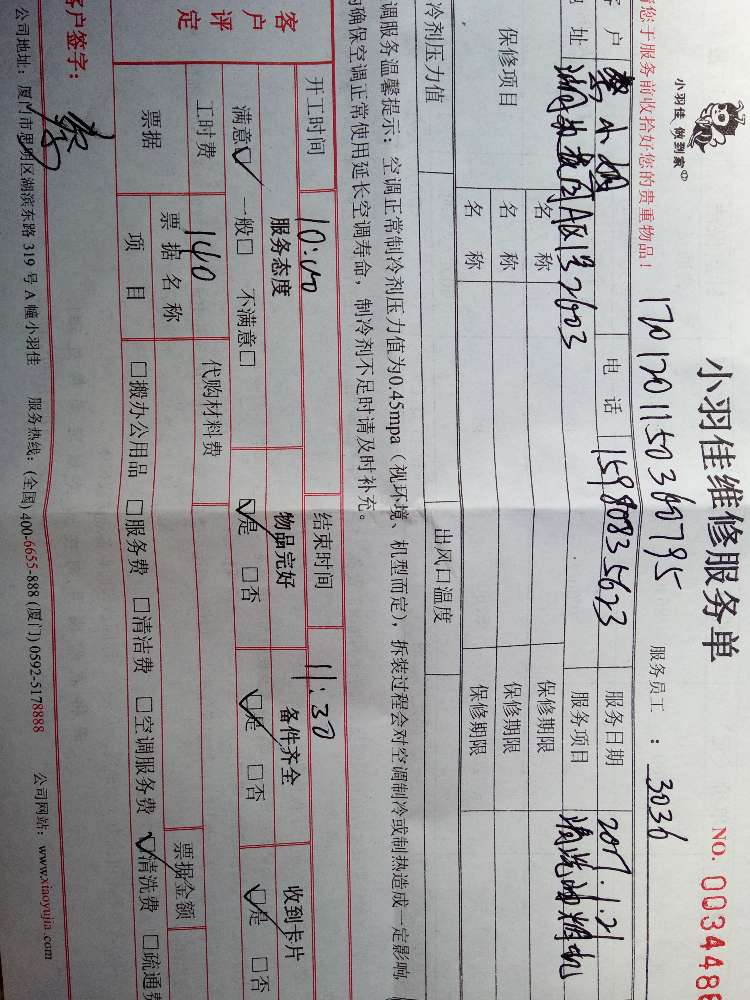 小羽佳 做到家
小羽佳维修服务单
NO. 0034488
请您于服务前收拾好您的贵重物品!
17017011503600795
服务员工 : 3036
客户
电话 15980835623
服务日期 2017.1.21
地址
服务项目 清洗油烟机
保修项目
名称
保修期限
名称
保修期限
名称
保修期限
冷剂压力值
出风口温度
调服务温馨提示:空调正常制冷剂压力值为0.45mpa(视环境、机型而定),拆装过程会对空调制冷或制热造成一定影响,
确保空调正常使用延长空调寿命,制冷剂不足时请及时补充。
开工时间 10:00 结束时间 11:30
客户评定
服务态度 物品完好 备件齐全 收到卡片
满意☑ 一般□ 不满意□ ☑是 □否 ☑是 □否 ☑是 □否
工时费 140 代购材料费
票据 票据名称 票据金额
项目 □搬办公用品 □服务费 □清洁费 □空调服务费 ☑清洗费 □疏通费
客户签字:
公司地址:厦门市思明区湖滨东路 319 号 A 幢小羽佳 服务热线:(全国) 400-6655-888 (厦门) 0592-5178888 公司网站:www.xiaoyujia.com